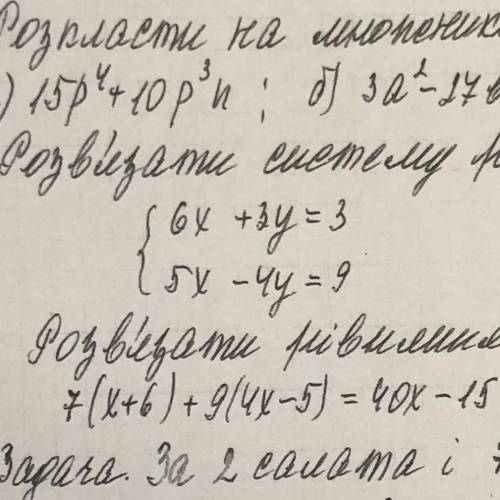 Розкласти на множник
) 15p⁴ + 10p³n ; б) 3a² - 27в
Розв'язати систему р
{ 6x + 3y = 3
5x - 4y = 9
Розв'язати рівнянн
7(x+6) + 9(4x-5) = 40x - 15
Задача. За 2 салата і 7